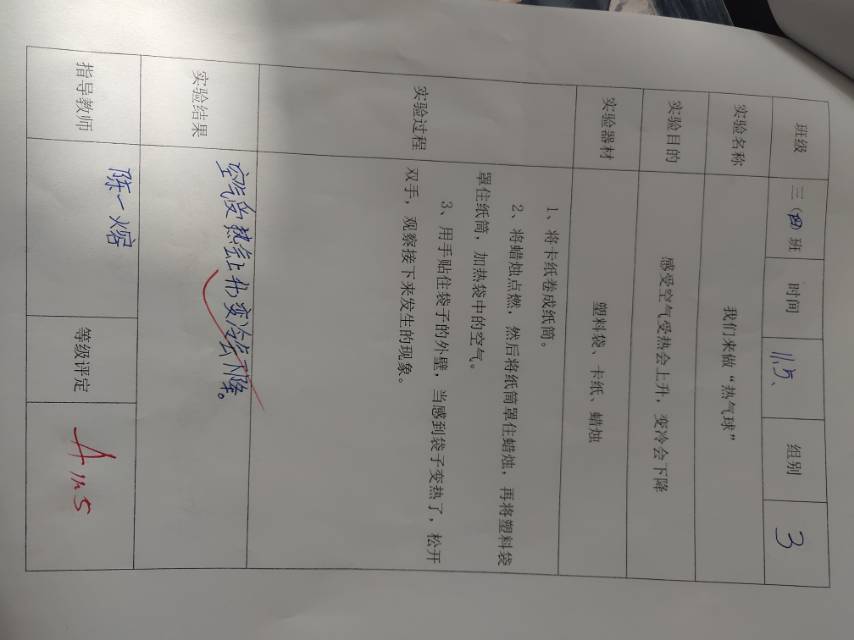 班级 三（四）班 时间 11.5、 组别 3
实验名称 我们来做“热气球”
实验目的 感受空气受热会上升，变冷会下降
实验器材 塑料袋、卡纸、蜡烛
实验过程
1、将卡纸卷成纸筒。
2、将蜡烛点燃，然后将纸筒罩住蜡烛，再将塑料袋
罩住纸筒，加热袋中的空气。
3、用手贴住袋子的外壁，当感到袋子变热了，松开
双手，观察接下来发生的现象。
实验结果 空气受热会上升变冷会下降。
指导教师 陈一熔 等级评定 A 11.5